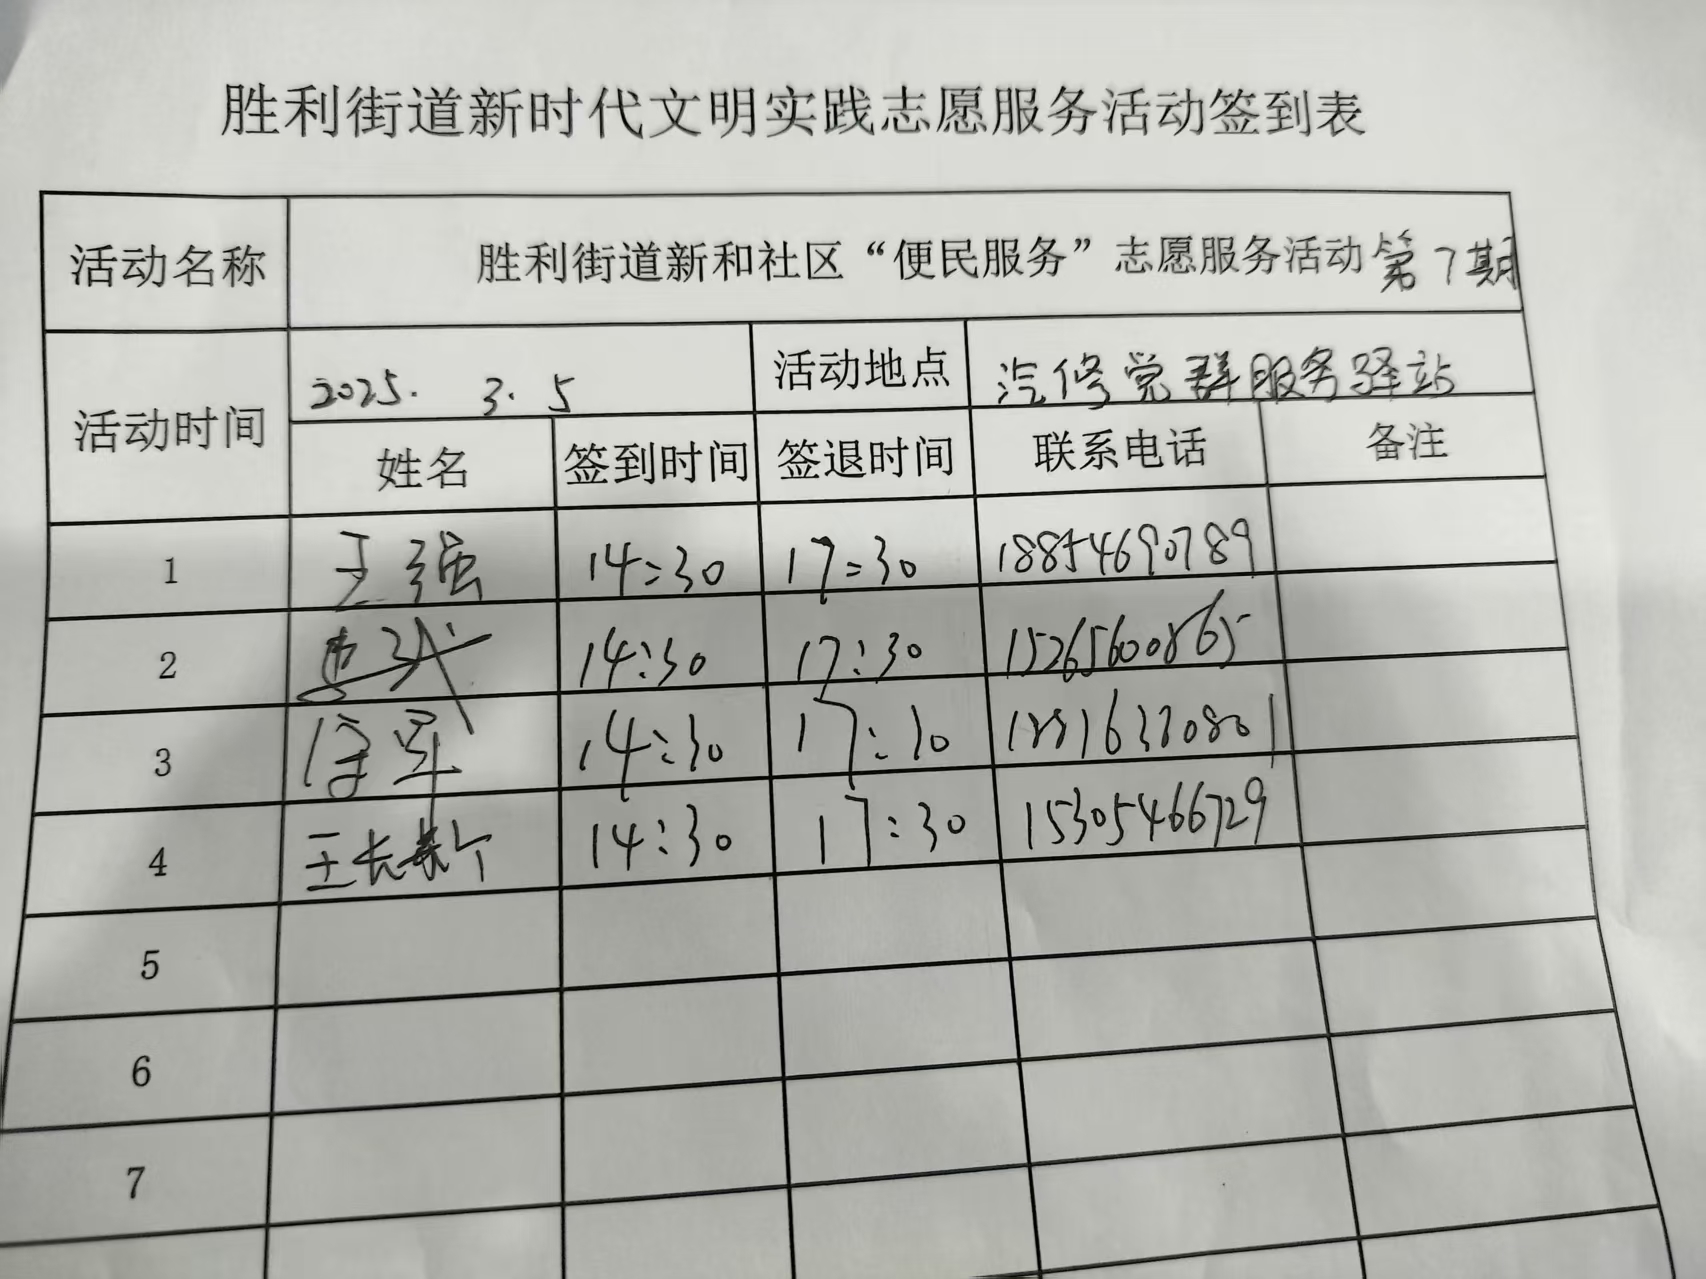 胜利街道新时代文明实践志愿服务活动签到表
活动名称 胜利街道新和社区“便民服务”志愿服务活动第7期
活动时间 2025. 3. 5 活动地点 汽修党群服务驿站
姓名 签到时间 签退时间 联系电话 备注
1 王强 14:30 17:30 18854690789
2 14:30 17:30 15265600865
3 14:30 17:30
4 王长 14:30 17:30 15305466729
5
6
7